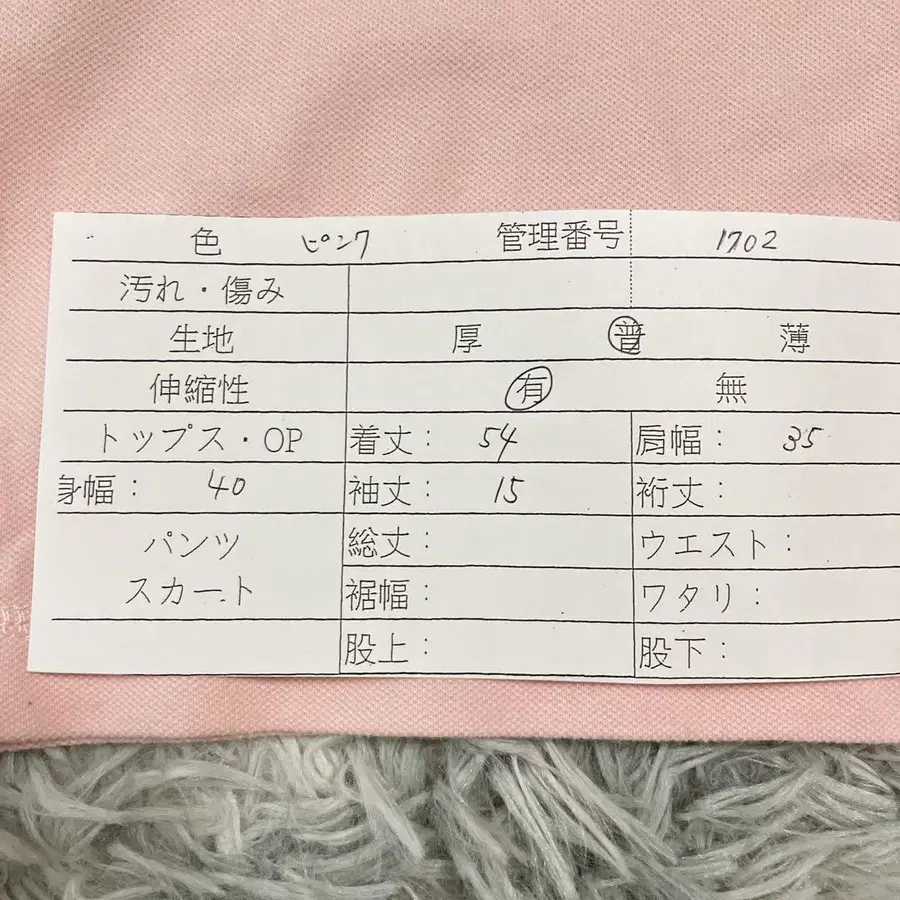 色 ピンク 管理番号 1702
汚れ・傷み
生地 厚 普 薄
伸縮性 有 無
トップス・OP 着丈： 54 肩幅： 35
身幅： 40 袖丈： 15 裄丈：
パンツ 総丈： ウエスト：
スカート 裾幅： ワタリ：
股上： 股下：